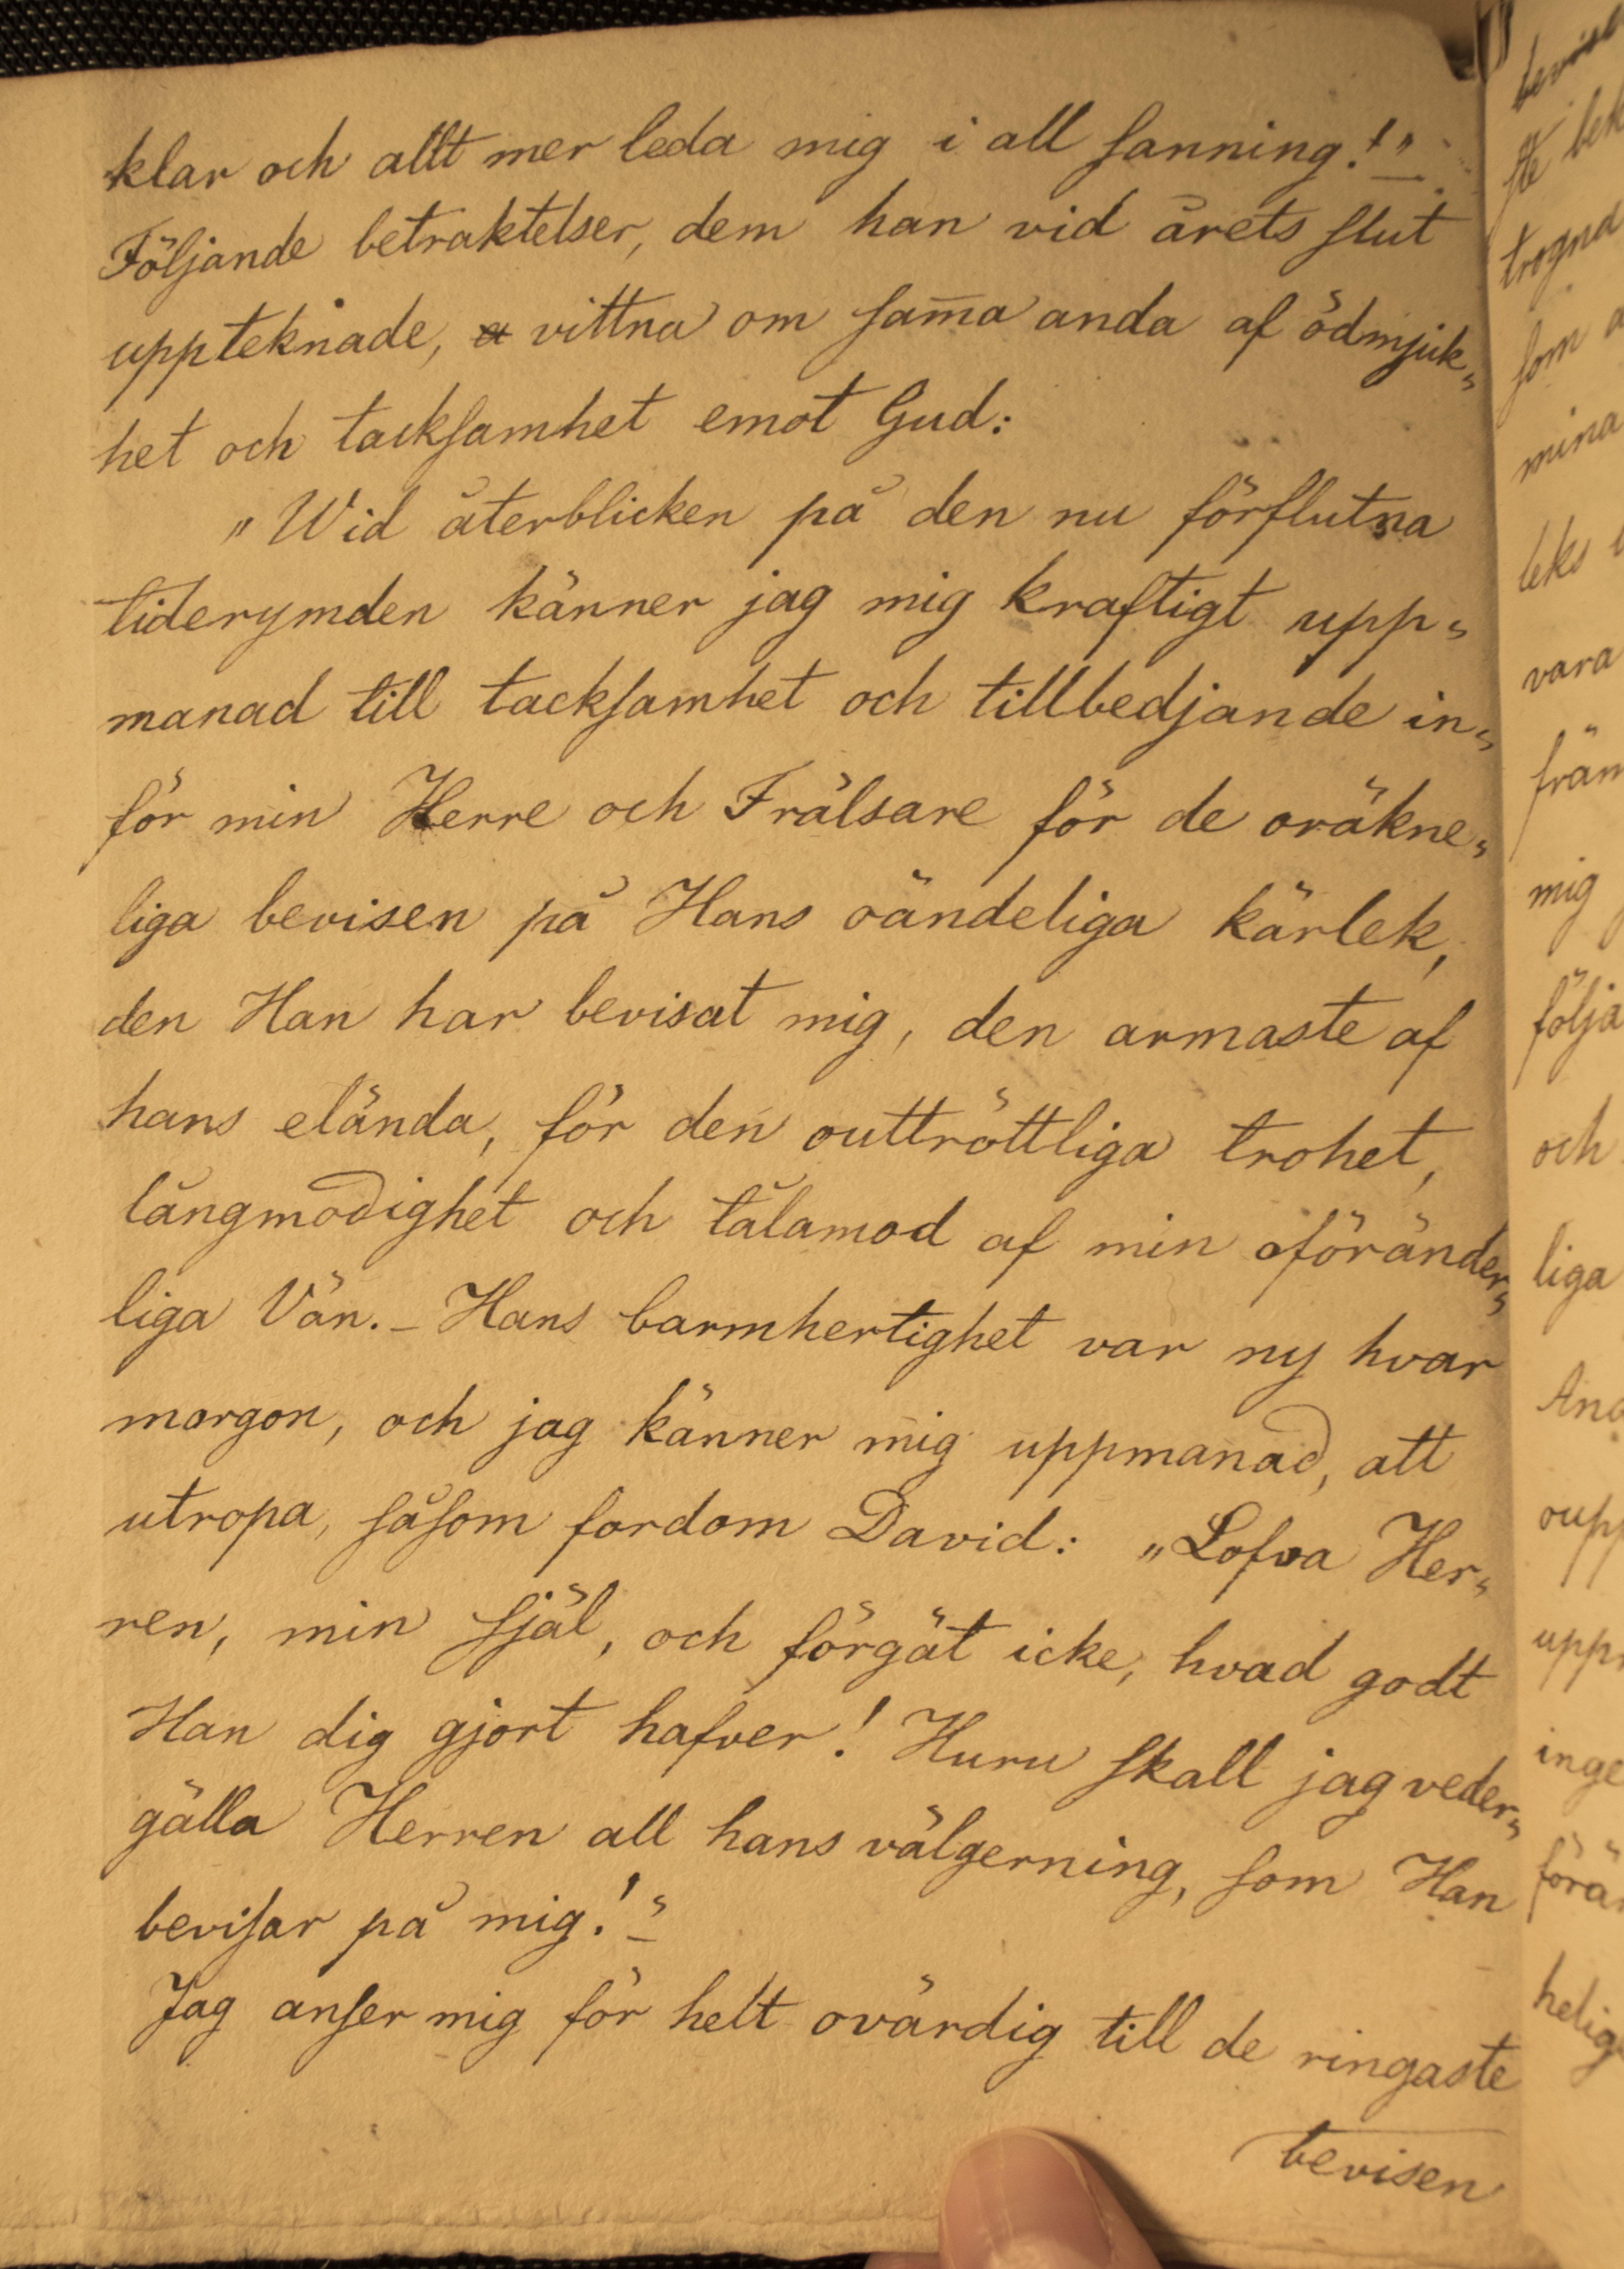 klar och allt mer leda mig i all sanning!"
Följande betraktelser, dem han vid årets slut
uppteknade, vittna om sam̅a anda af ödmjuk„
het och tacksamhet emot Gud:
„Wid återblicken på den nu förflutna
tiderymden känner jag mig kraftigt upp„
manad till tacksamhet och tillbedjande in„
för min Herre och Frälsare för de oräkne„
liga bevisen på Hans oändeliga kärlek,
den Han har bevisat mig, den armaste af
hans elända, för den outtröttliga trohet,
långmodighet och tålamod af min oföränder„
liga Vän. – Hans barmhertighet var ny hvar
morgon, och jag känner mig uppmanad, att
utropa, såsom fordom David: „Lofva Her„
ren, min själ, och förgät icke, hvad godt
Han dig gjort hafver! Huru skall jag veder„
gälla Herren all hans välgerning, som Han
bevisar på mig!"
Jag anser mig för helt ovärdig till de ringaste
bevisen
trogna
som
mina
leks
vara
mig
följa
och
liga